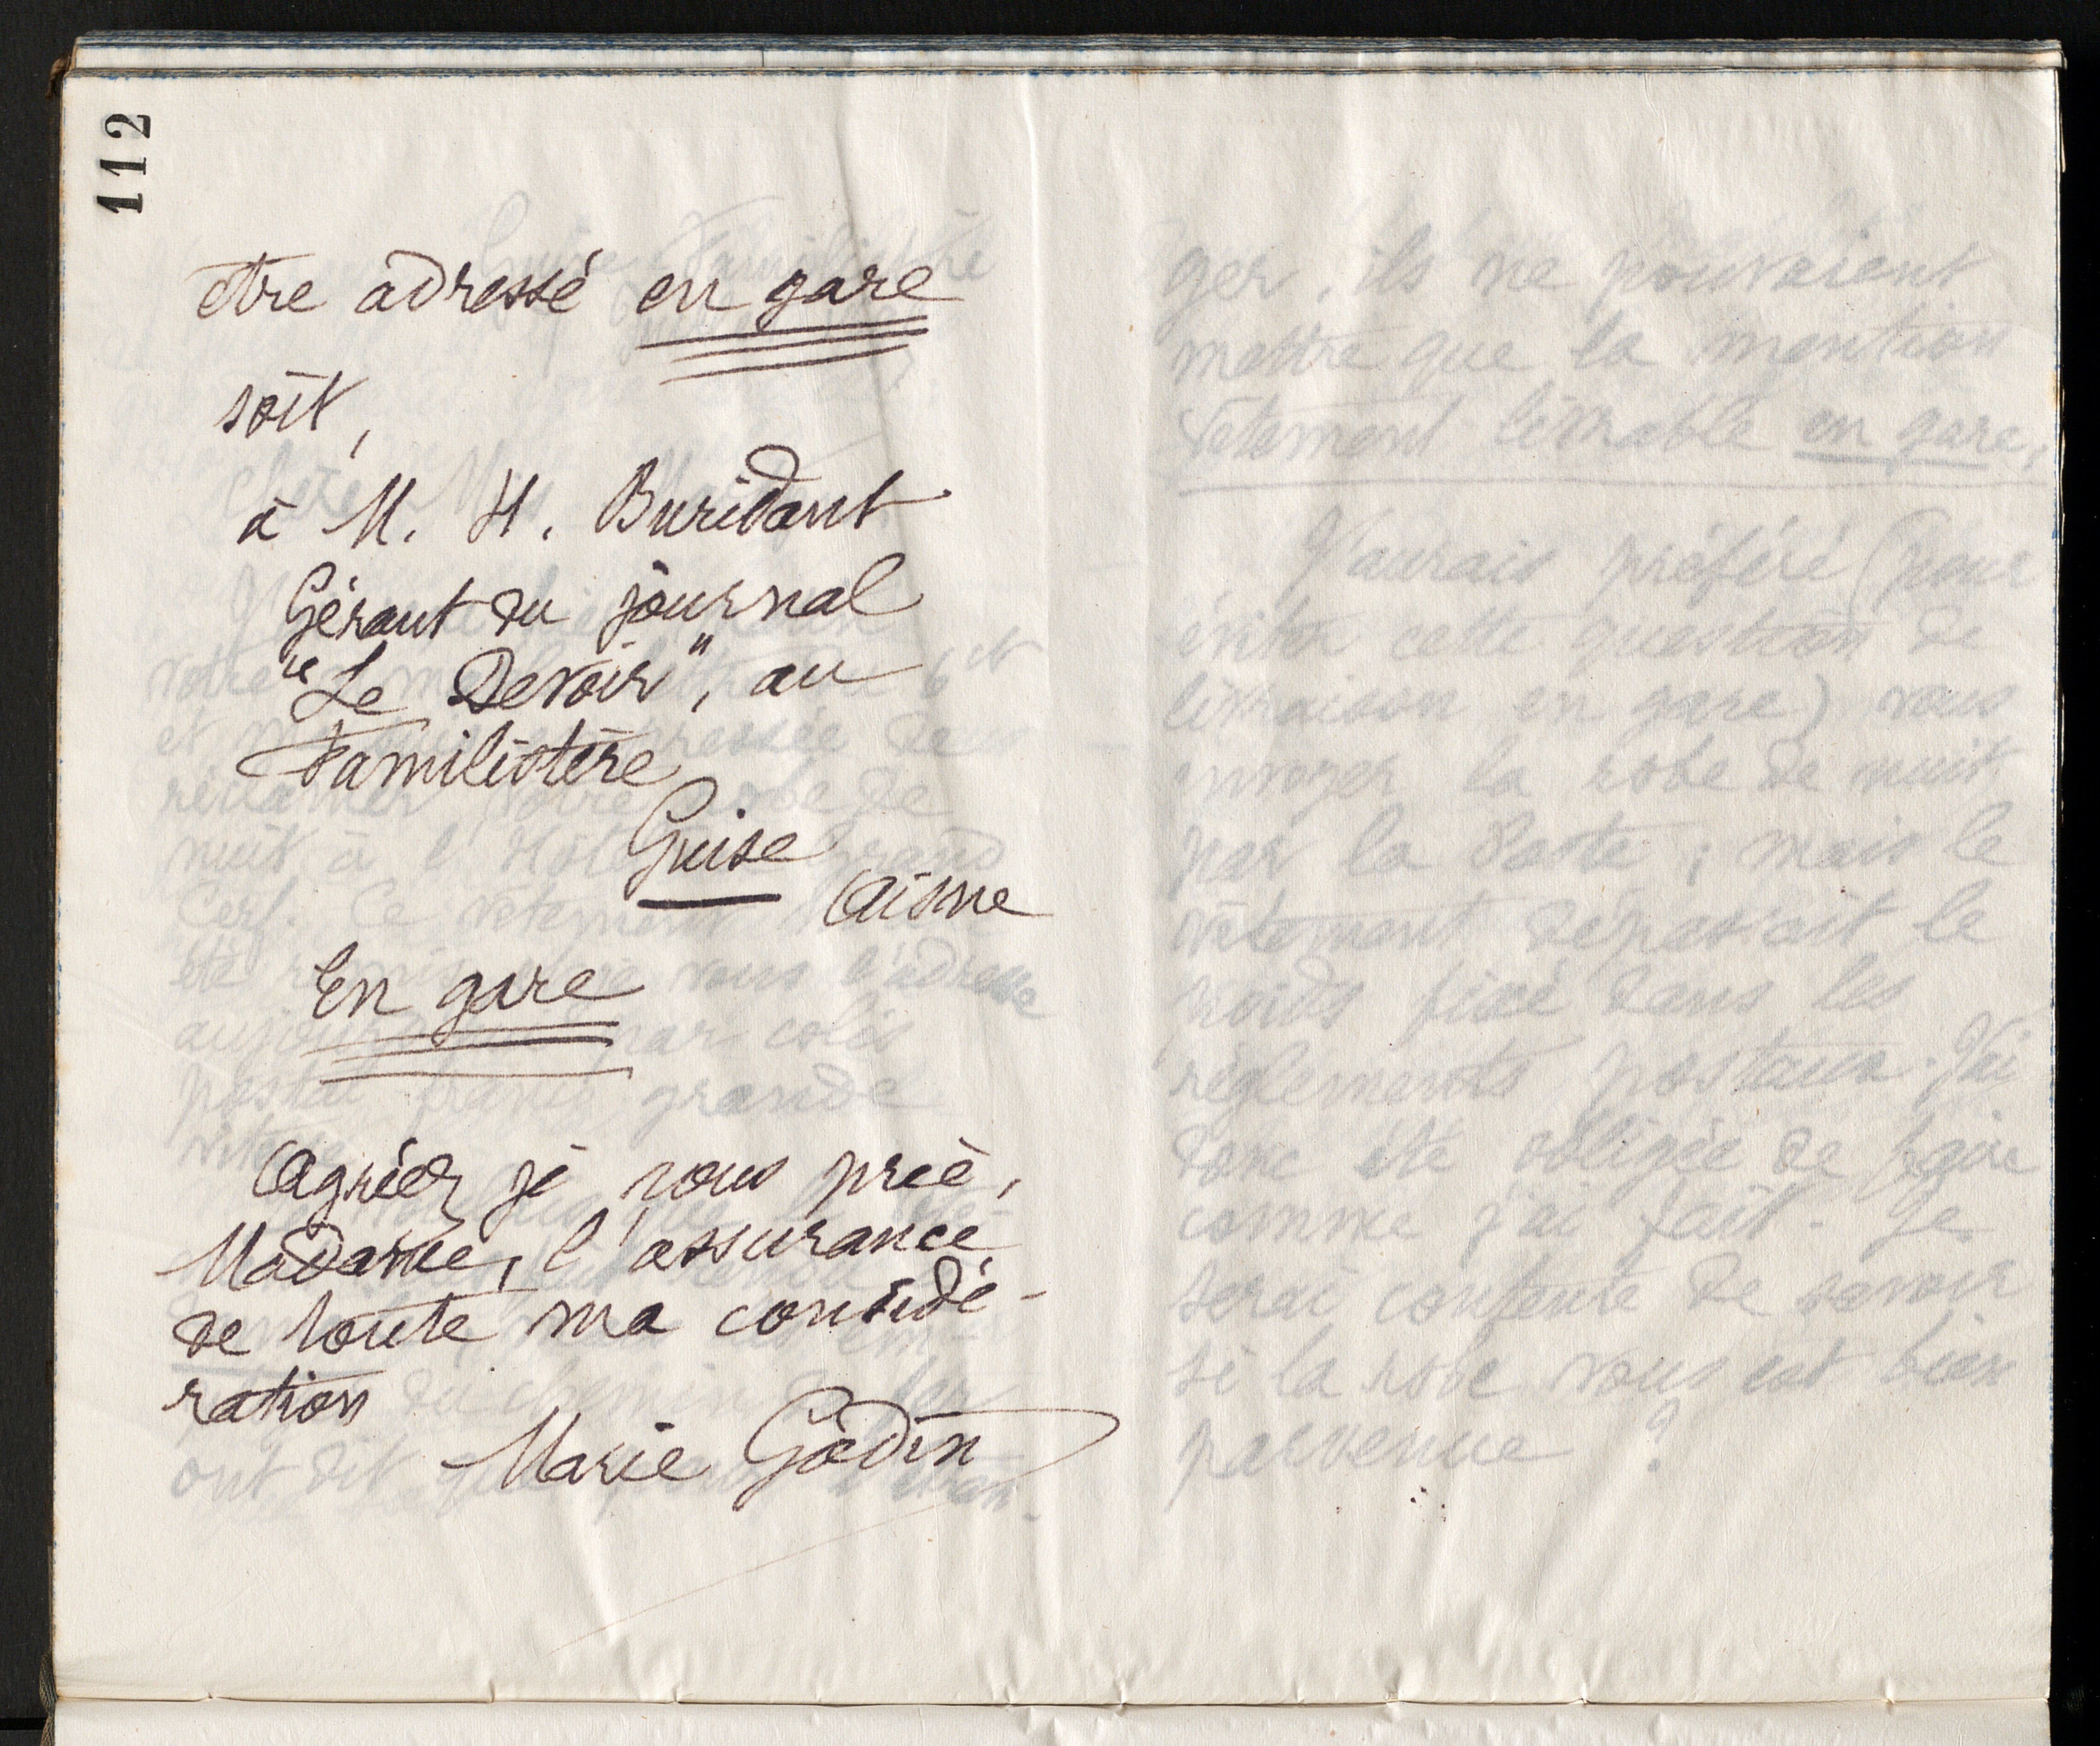 112
être adressé en gare
soit,
à M. H. Buridant
Gérant du journal
"Le Devoir", au
Familistère
Guise
Aisne
En gare
Agréez je vous prie,
Madame, l'assurance
de toute ma considé-
ration
Marie Godin
ger, ils ne pouvaient
mettre que la mention
vêtement livrable en gare.
J'aurais préféré (pour
éviter cette question de
livraison en gare) vous
envoyer la robe de nuit
par la Poste ; mais le
vêtement dépassait le
poids fixé dans les
règlements postaux. J'ai
donc été obligée de faire
comme j'ai fait. Je
serai contente de savoir
si la robe vous est bien
parvenue ?